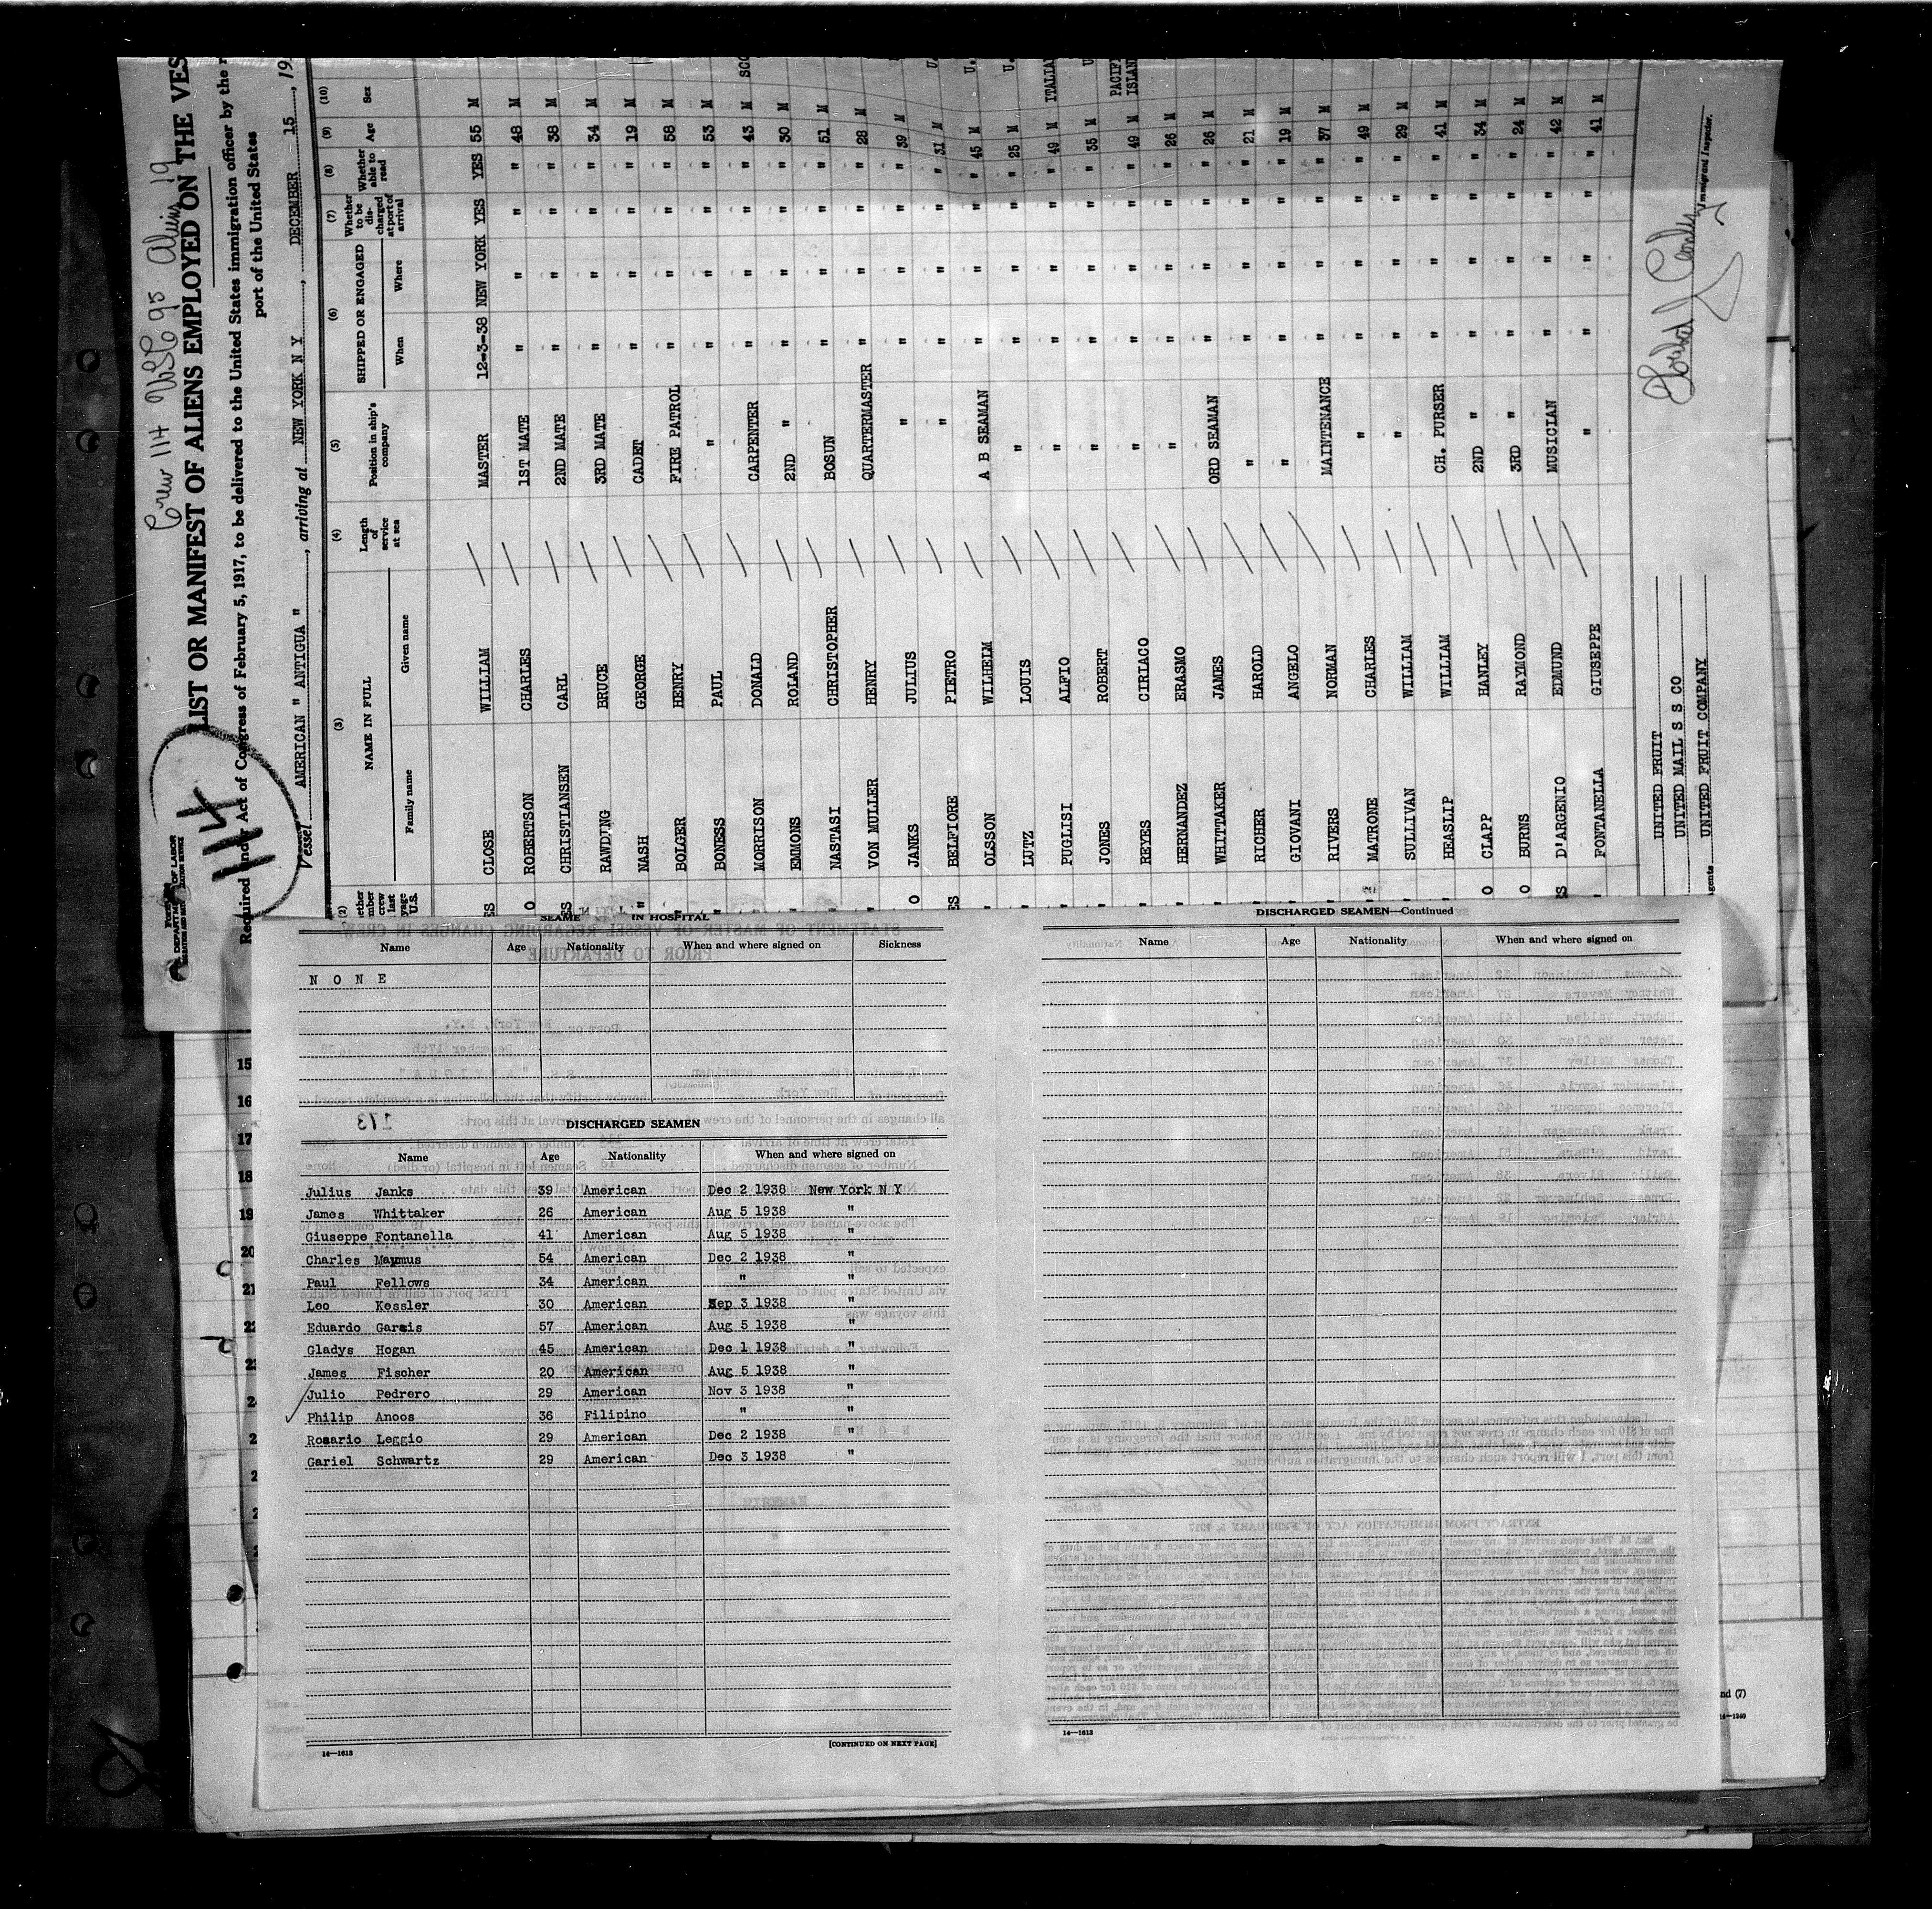 Crew 114 USC 95 Aliens 19
LIST OR MANIFEST OF ALIENS EMPLOYED ON THE VES
Required under Act of Congress of February 5, 1917, to be delivered to the United States immigration officer by the
port of the United States
114
Vessel AMERICAN " ANTIGUA " , arriving at NEW YORK N Y , DECEMBER 15 , 19
(2) (3) (4) (5) (6) (7) (8) (9) (10)
NAME IN FULL Length of service at sea Position in ship's company SHIPPED OR ENGAGED Whether to be discharged at port of arrival Whether able to read Age Sex
Family name Given name When Where
CLOSE WILLIAM MASTER 12-3-38 NEW YORK YES YES 55 M
ROBERTSON CHARLES 1ST MATE " " " " 48 M
CHRISTIANSEN CARL 2ND MATE " " " " 38 M
RAWDING BRUCE 3RD MATE " " " " 34 M
NASH GEORGE CADET " " " " 19 M
BOLGER HENRY FIRE PATROL " " " " 58 M
BONESS PAUL " " " " " 53 M
MORRISON DONALD CARPENTER " " " " 43 M
EMMONS ROLAND 2ND " " " " " 30 M
NASTASI CHRISTOPHER BOSUN " " " " 51 M
VON MULLER HENRY QUARTERMASTER " " " " 28 M
JANKS JULIUS " " " " " 39 M
BELFIORE PIETRO " " " " " 31 M
OLSSON WILHELM A B SEAMAN " " " " 45 M
LUTZ LOUIS " " " " " 25 M
PUGLISI ALFIO " " " " " 49 M ITALIA
JONES ROBERT " " " " " 35 M
REYES CIRIACO " " " " " 49 M PACIF ISLAN
HERNANDEZ ERASMO " " " " " 26 M
WHITTAKER JAMES ORD SEAMAN " " " " 26 M
RICHER HAROLD " " " " " 21 M
GIOVANI ANGELO " " " " " 19 M
RIVERS NORMAN MAINTENANCE " " " " 37 M
MATRONE CHARLES " " " " " 49 M
SULLIVAN WILLIAM " " " " " 29 M
HEASLIP WILLIAM CH. PURSER " " " " 41 M
CLAPP HANLEY 2ND " " " " " 34 M
BURNS RAYMOND 3RD " " " " " 24 M
D'ARGENIO EDMUND MUSICIAN " " " " 42 M
FONTANELLA GIUSEPPE " " " " " 41 M
UNITED FRUIT
UNITED MAIL S S CO
UNITED FRUIT COMPANY
Immigrant Inspector.
IN HOSPITAL
Name Age Nationality When and where signed on Sickness
N O N E
DISCHARGED SEAMEN
Name Age Nationality When and where signed on
Julius Janks 39 American Dec 2 1938 New York N Y
James Whittaker 26 American Aug 5 1938 "
Giuseppe Fontanella 41 American Aug 5 1938 "
Charles Maymus 54 American Dec 2 1938 "
Paul Fellows 34 American " "
Leo Kessler 30 American Sep 3 1938 "
Eduardo Garais 57 American Aug 5 1938 "
Gladys Hogan 45 American Dec 1 1938 "
James Fischer 20 American Aug 5 1938 "
Julio Pedrero 29 American Nov 3 1938 "
Philip Anoos 36 Filipino " "
Rosario Leggio 29 American Dec 2 1938 "
Gariel Schwartz 29 American Dec 3 1938 "
14—1613
[CONTINUED ON NEXT PAGE]
DISCHARGED SEAMEN—Continued
Name Age Nationality When and where signed on
14—1613
15
16
17
18
19
20
21
nd (7)
14—1240